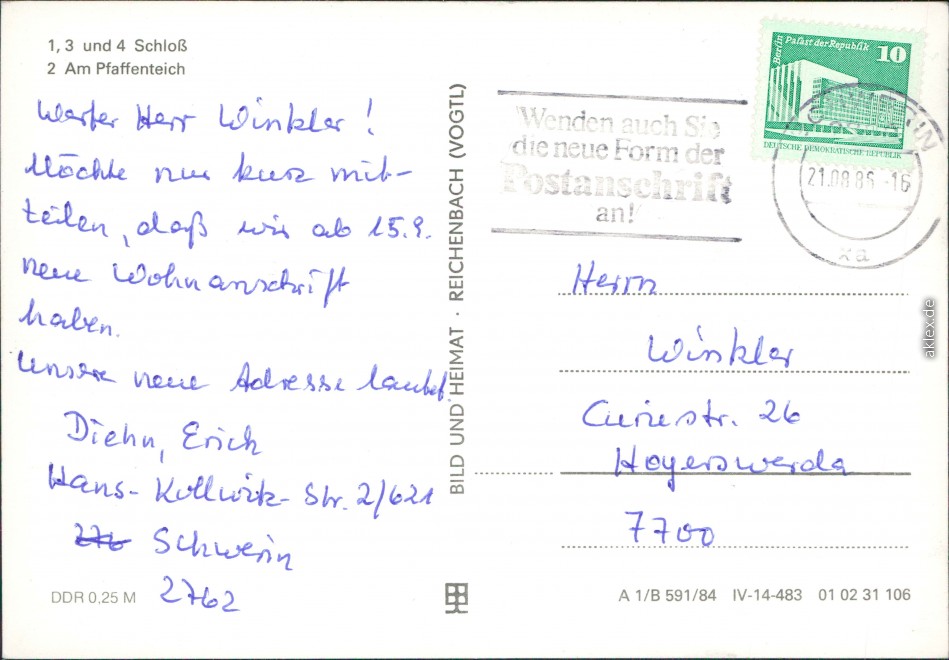 1, 3 und 4 Schloß
2 Am Pfaffenteich
Werter Herr Winkler!
Möchte nur kurz mit-
teilen, daß wir ab 15.9.
neue Wohnanschrift
haben.
Unsere neue Adresse lautet
Diehn, Erich
Hans-Kollwitz-Str. 2/621
276 Schwerin
2762
DDR 0,25 M
BILD UND HEIMAT · REICHENBACH (VOGTL)
Wenden auch Sie
die neue Form der
Postanschrift
an!
Berlin Palast der Republik 10
DEUTSCHE DEMOKRATISCHE REPUBLIK
21.08.86 -16
xa
Herrn
Winkler
Curiestr. 26
Hoyerswerda
7700
A 1/B 591/84 IV-14-483 01 02 31 106
aklex.de